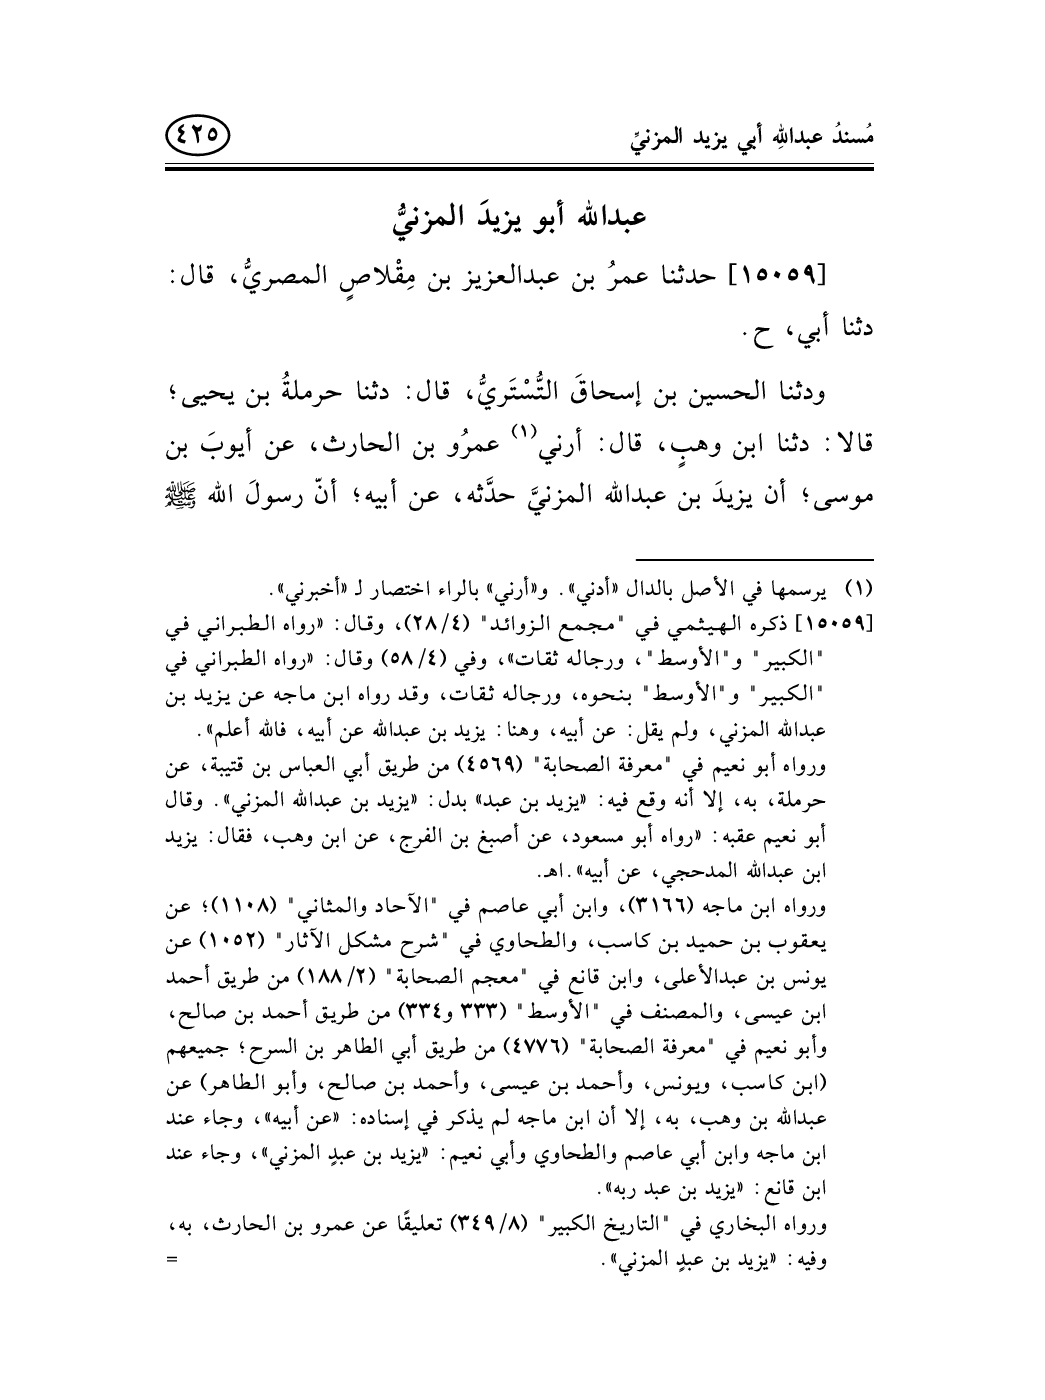 مُسندُ عبداللهِ أبي يزيد المزنيِّ
٤٢٥
عبدالله أبو يزيدَ المزنيُّ
[١٥٠٥٩] حدثنا عمرُ بن عبدالعزيز بن مِقْلاصٍ المصريُّ، قال:
دثنا أبي، ح.
ودثنا الحسين بن إسحاقَ التُّسْتَريُّ، قال: دثنا حرملةُ بن يحيى؛
قالا: دثنا ابن وهبٍ، قال: أرني(١) عمرُو بن الحارث، عن أيوبَ بن
موسى؛ أن يزيدَ بن عبدالله المزنيَّ حدَّثه، عن أبيه؛ أنّ رسولَ الله ﷺ
(١) يرسمها في الأصل بالدال «أدني». و«أرني» بالراء اختصار لـ «أخبرني».
[١٥٠٥٩] ذكره الهيثمي في "مجمع الزوائد" (٢٨/٤)، وقال: «رواه الطبراني في
"الكبير" و"الأوسط"، ورجاله ثقات»، وفي (٥٨/٤) وقال: «رواه الطبراني في
"الكبير" و"الأوسط" بنحوه، ورجاله ثقات، وقد رواه ابن ماجه عن يزيد بن
عبدالله المزني، ولم يقل: عن أبيه، وهنا: يزيد بن عبدالله عن أبيه، فالله أعلم».
ورواه أبو نعيم في "معرفة الصحابة" (٤٥٦٩) من طريق أبي العباس بن قتيبة، عن
حرملة، به، إلا أنه وقع فيه: «يزيد بن عبد» بدل: «يزيد بن عبدالله المزني». وقال
أبو نعيم عقبه: «رواه أبو مسعود، عن أصبغ بن الفرج، عن ابن وهب، فقال: يزيد
ابن عبدالله المدحجي، عن أبيه».اهـ.
ورواه ابن ماجه (٣١٦٦)، وابن أبي عاصم في "الآحاد والمثاني" (١١٠٨)؛ عن
يعقوب بن حميد بن كاسب، والطحاوي في "شرح مشكل الآثار" (١٠٥٢) عن
يونس بن عبدالأعلى، وابن قانع في "معجم الصحابة" (١٨٨/٢) من طريق أحمد
ابن عيسى، والمصنف في "الأوسط" (٣٣٣ و٣٣٤) من طريق أحمد بن صالح،
وأبو نعيم في "معرفة الصحابة" (٤٧٧٦) من طريق أبي الطاهر بن السرح؛ جميعهم
(ابن كاسب، ويونس، وأحمد بن عيسى، وأحمد بن صالح، وأبو الطاهر) عن
عبدالله بن وهب، به، إلا أن ابن ماجه لم يذكر في إسناده: «عن أبيه»، وجاء عند
ابن ماجه وابن أبي عاصم والطحاوي وأبي نعيم: «يزيد بن عبدٍ المزني»، وجاء عند
ابن قانع: «يزيد بن عبد ربه».
ورواه البخاري في "التاريخ الكبير" (٣٤٩/٨) تعليقًا عن عمرو بن الحارث، به،
وفيه: «يزيد بن عبدٍ المزني». =